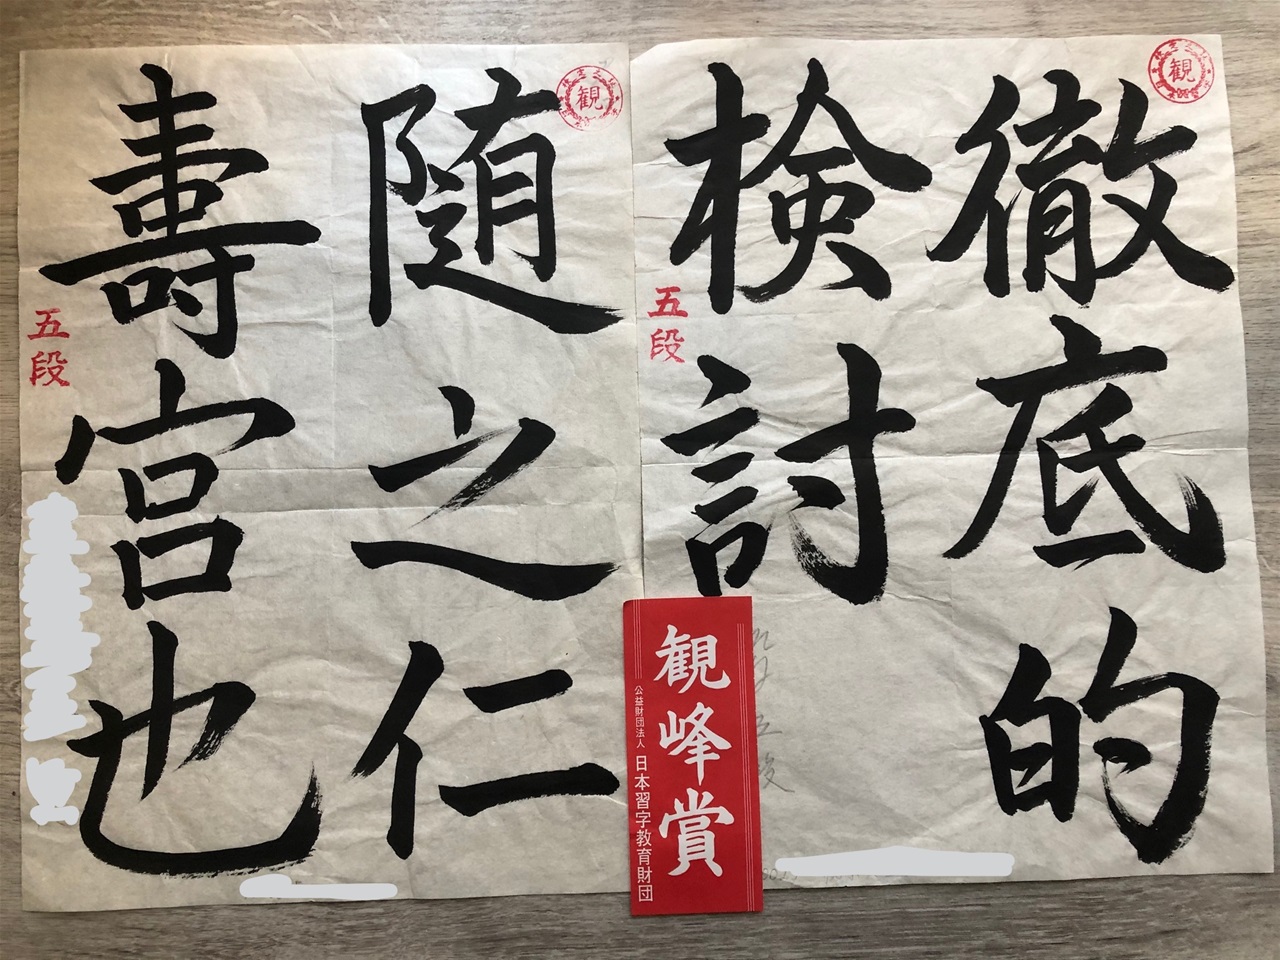 徹底的
検討
五段
観
随之仁
壽宮也
五段
観
観峰賞
公益財団法人 日本習字教育財団